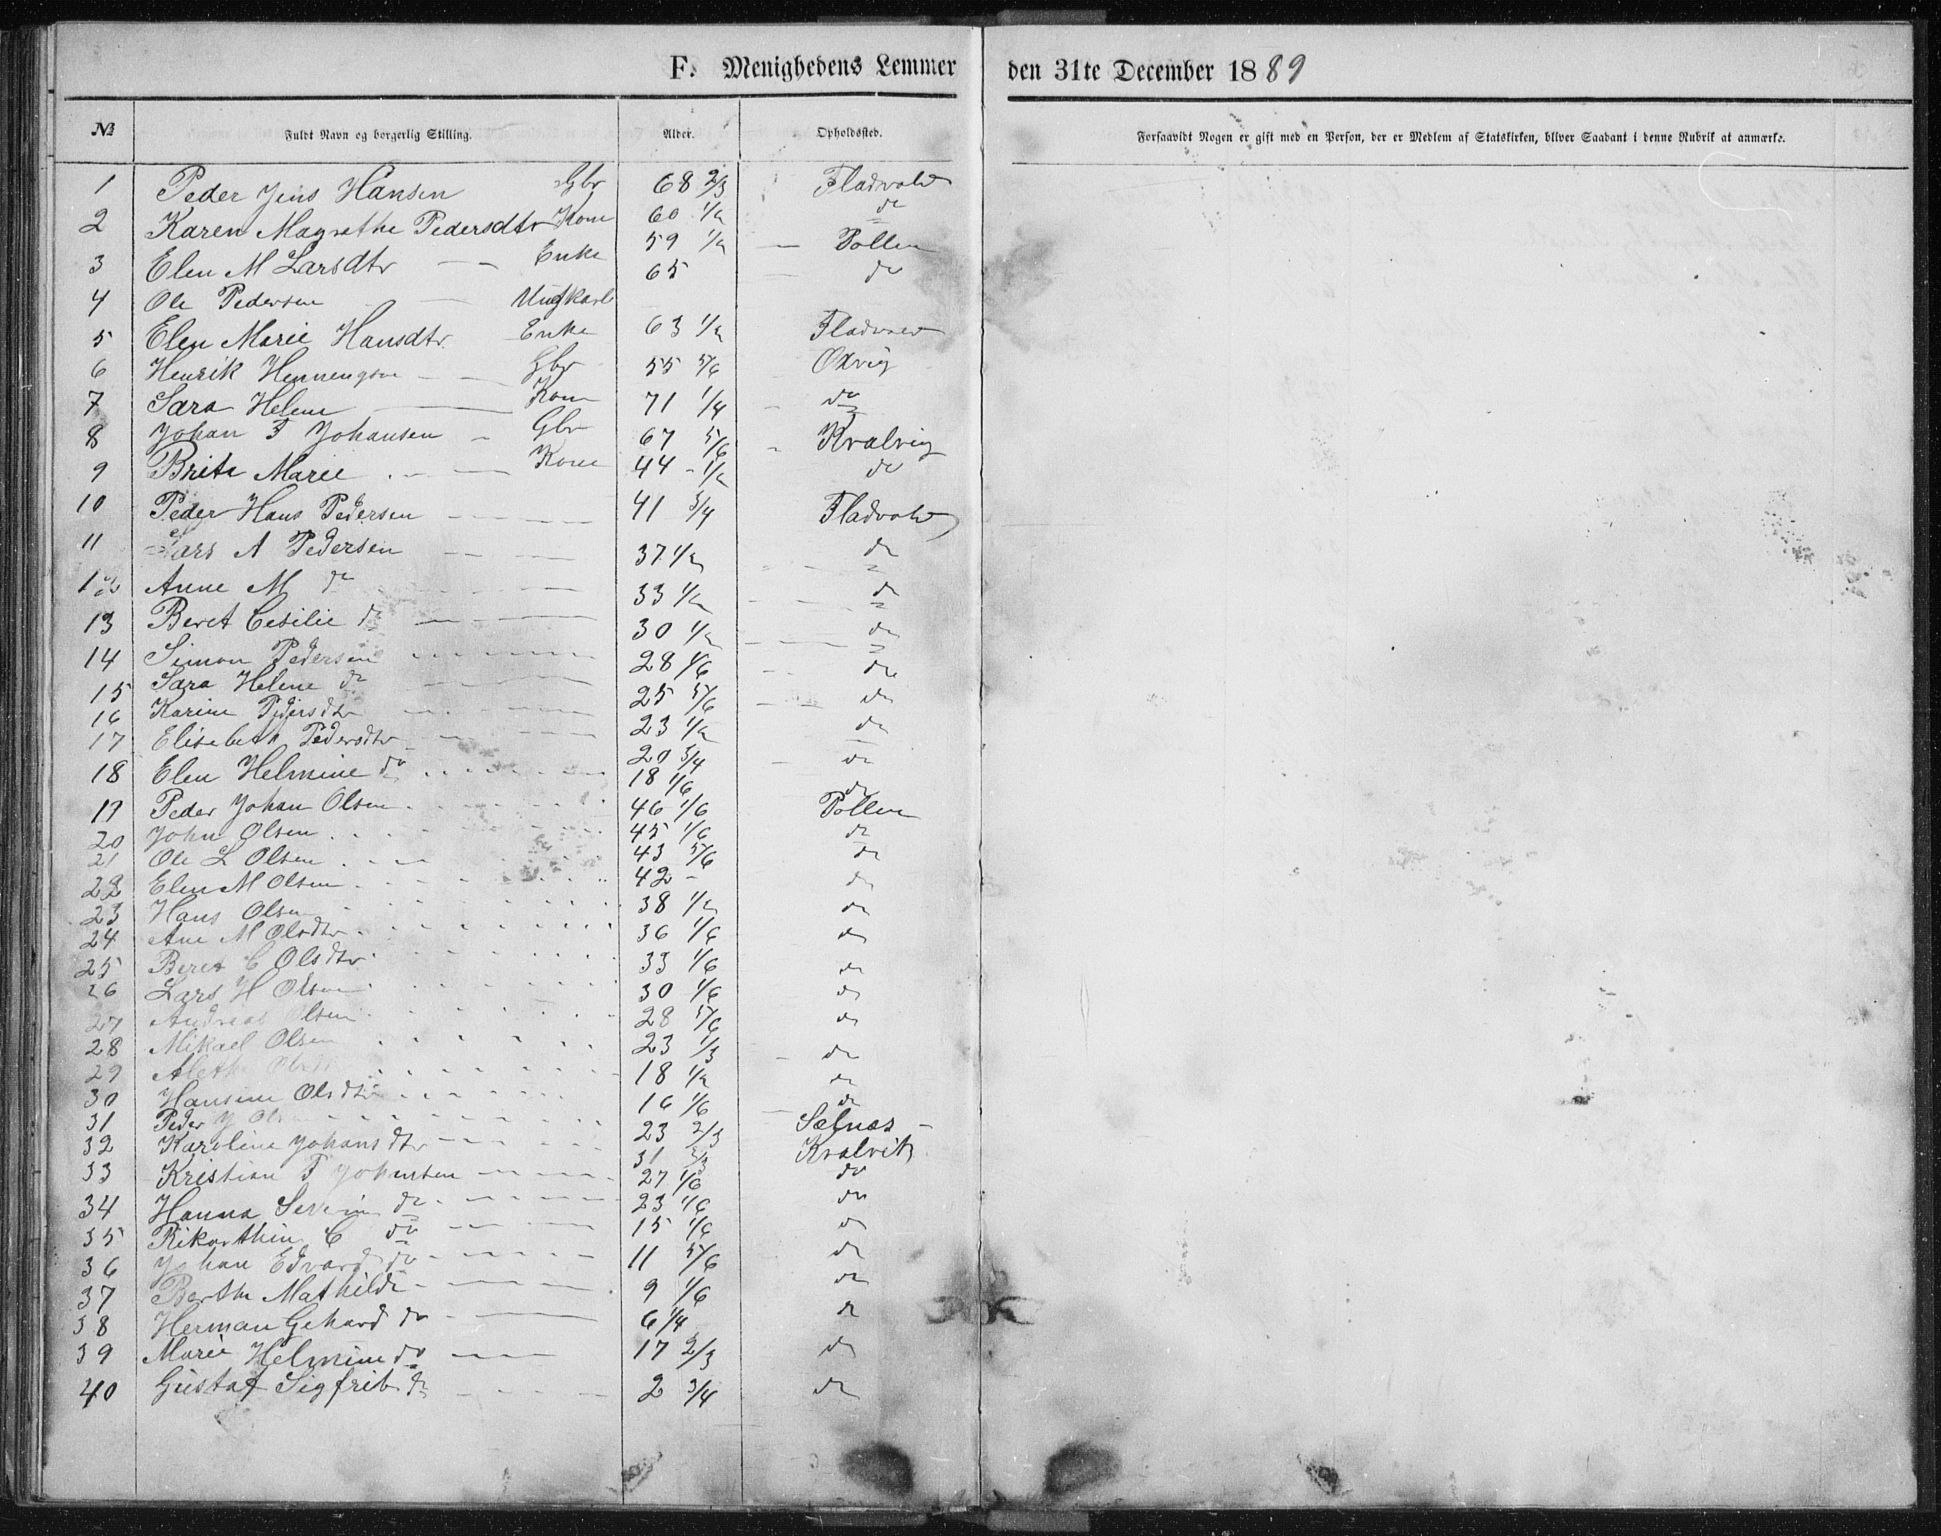 F. Menighedens Lemmer den 31te December 1889
№ Fuldt Navn og borgerlig Stilling. Alder. Opholdssted. Forsaavidt Nogen er gift med en Person, der er Medlem af Statskirken, bliver Saadant i denne Rubrik at anmærke.
1 Peder Jens Hansen Gbr 68 2/3 Fladvold
2 Karen Magrethe Pedersdtr Kone 60 1/2 do
3 Elen M Larsdtr Enke 59 1/2 Pollen
4 Ole Pedersen Ungkarl 65 do
5 Elen Marie Hansdtr Enke 63 1/2
6 Henrik Henningsen Gbr 55 5/6 Oxvig
7 Sara Helene Kone 71 1/4 do
8 Johan F Johansen Gbr 67 5/6 Kvalvig
9 Brita Marie Kone 44 - 1/2 do
10 Peder Hans Pedersen 41 3/4 Fladvold
11 Lars A Pedersen 37 1/2 do
12 Anne M do 33 1/2 do
13 Beret Cesilie do 30 1/2 do
14 Simon Pedersen 28 1/6 do
15 Sara Helene do 25 5/6 do
16 Karine Pedersdtr 23 1/2 do
17 Elisabeth Pedersdtr 20 3/4 do
18 Elen Helmine do 18 1/6 do
19 Peder Johan Olsen 46 1/6 Pollen
20 John Olsen 45 1/6 do
21 Ole L Olsen 43 5/6 do
22 Elen M Olsen 42 - do
23 Hans Olsen 38 1/2 do
24 Ane M Olsdtr 36 1/6 do
25 Beret C Olsdtr 33 1/6 do
26 Lars H Olsen 30 1/6 do
27 Andreas Olsen 28 5/6 do
28 Mikael Olsen 23 1/3 do
29 18 1/2 do
30 Hansine Olsdtr 16 1/6 do
31 Peder J 23 2/3 Sælnæs
32 Karoline Johansdtr 31 2/3 Kvalvik
33 Kristian F Johansen 27 1/6 do
34 Hanna Severin do 23 1/6 do
35 C do 15 1/6 do
36 Johan Edvard do 11 5/6 do
37 Berthe Mathilde 9 1/6 do
38 Herman Gehard do 6 1/4 do
39 Marie Helmine do 17 2/3 do
40 Gustaf Sigfrid do 2 3/4 do